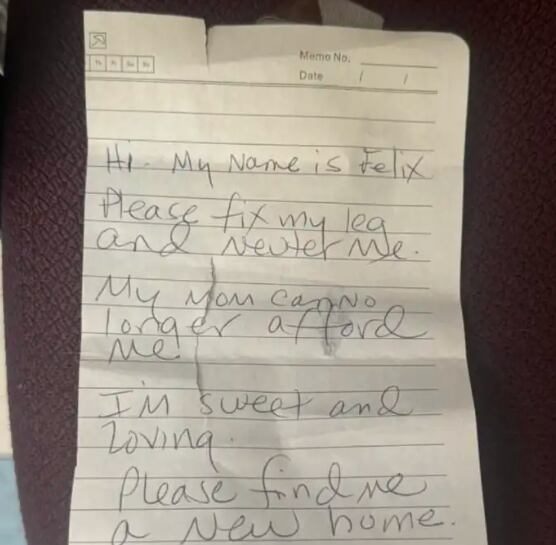 Memo No.
Th Fr Sa Su
Date / /
Hi. My Name is Felix
Please fix my leg
and Neuter Me.
My Mom can No
longer afford
Me
I'm sweet and
loving.
Please find me
a New home.